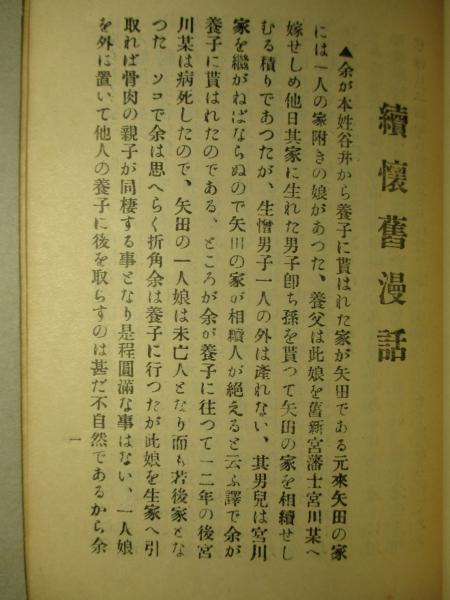 續懷舊漫話
▲余が本姓谷井から養子に貰はれた家が矢田である元來矢田の家
には一人の家附きの娘があつた、養父は此娘を舊新宮藩士宮川某へ
嫁せしめ他日其家に生れた男子卽ち孫を貰つて矢田の家を相續せし
むる積りであつたが、生憎男子一人の外は產れない、其男兒は宮川
家を繼がねばならぬので矢田の家が相續人が絕えると云ふ譯で余が
養子に貰はれたのである、ところが余が養子に往つて一二年の後宮
川某は病死したので、矢田の一人娘は未亡人となり而も若後家とな
つた ソコで余は思へらく折角余は養子に行つたが此娘を生家へ引
取れば骨肉の親子が同棲する事となり是程圓滿な事はない、一人娘
を外に置いて他人の養子に後を取らすのは甚だ不自然であるから余
一